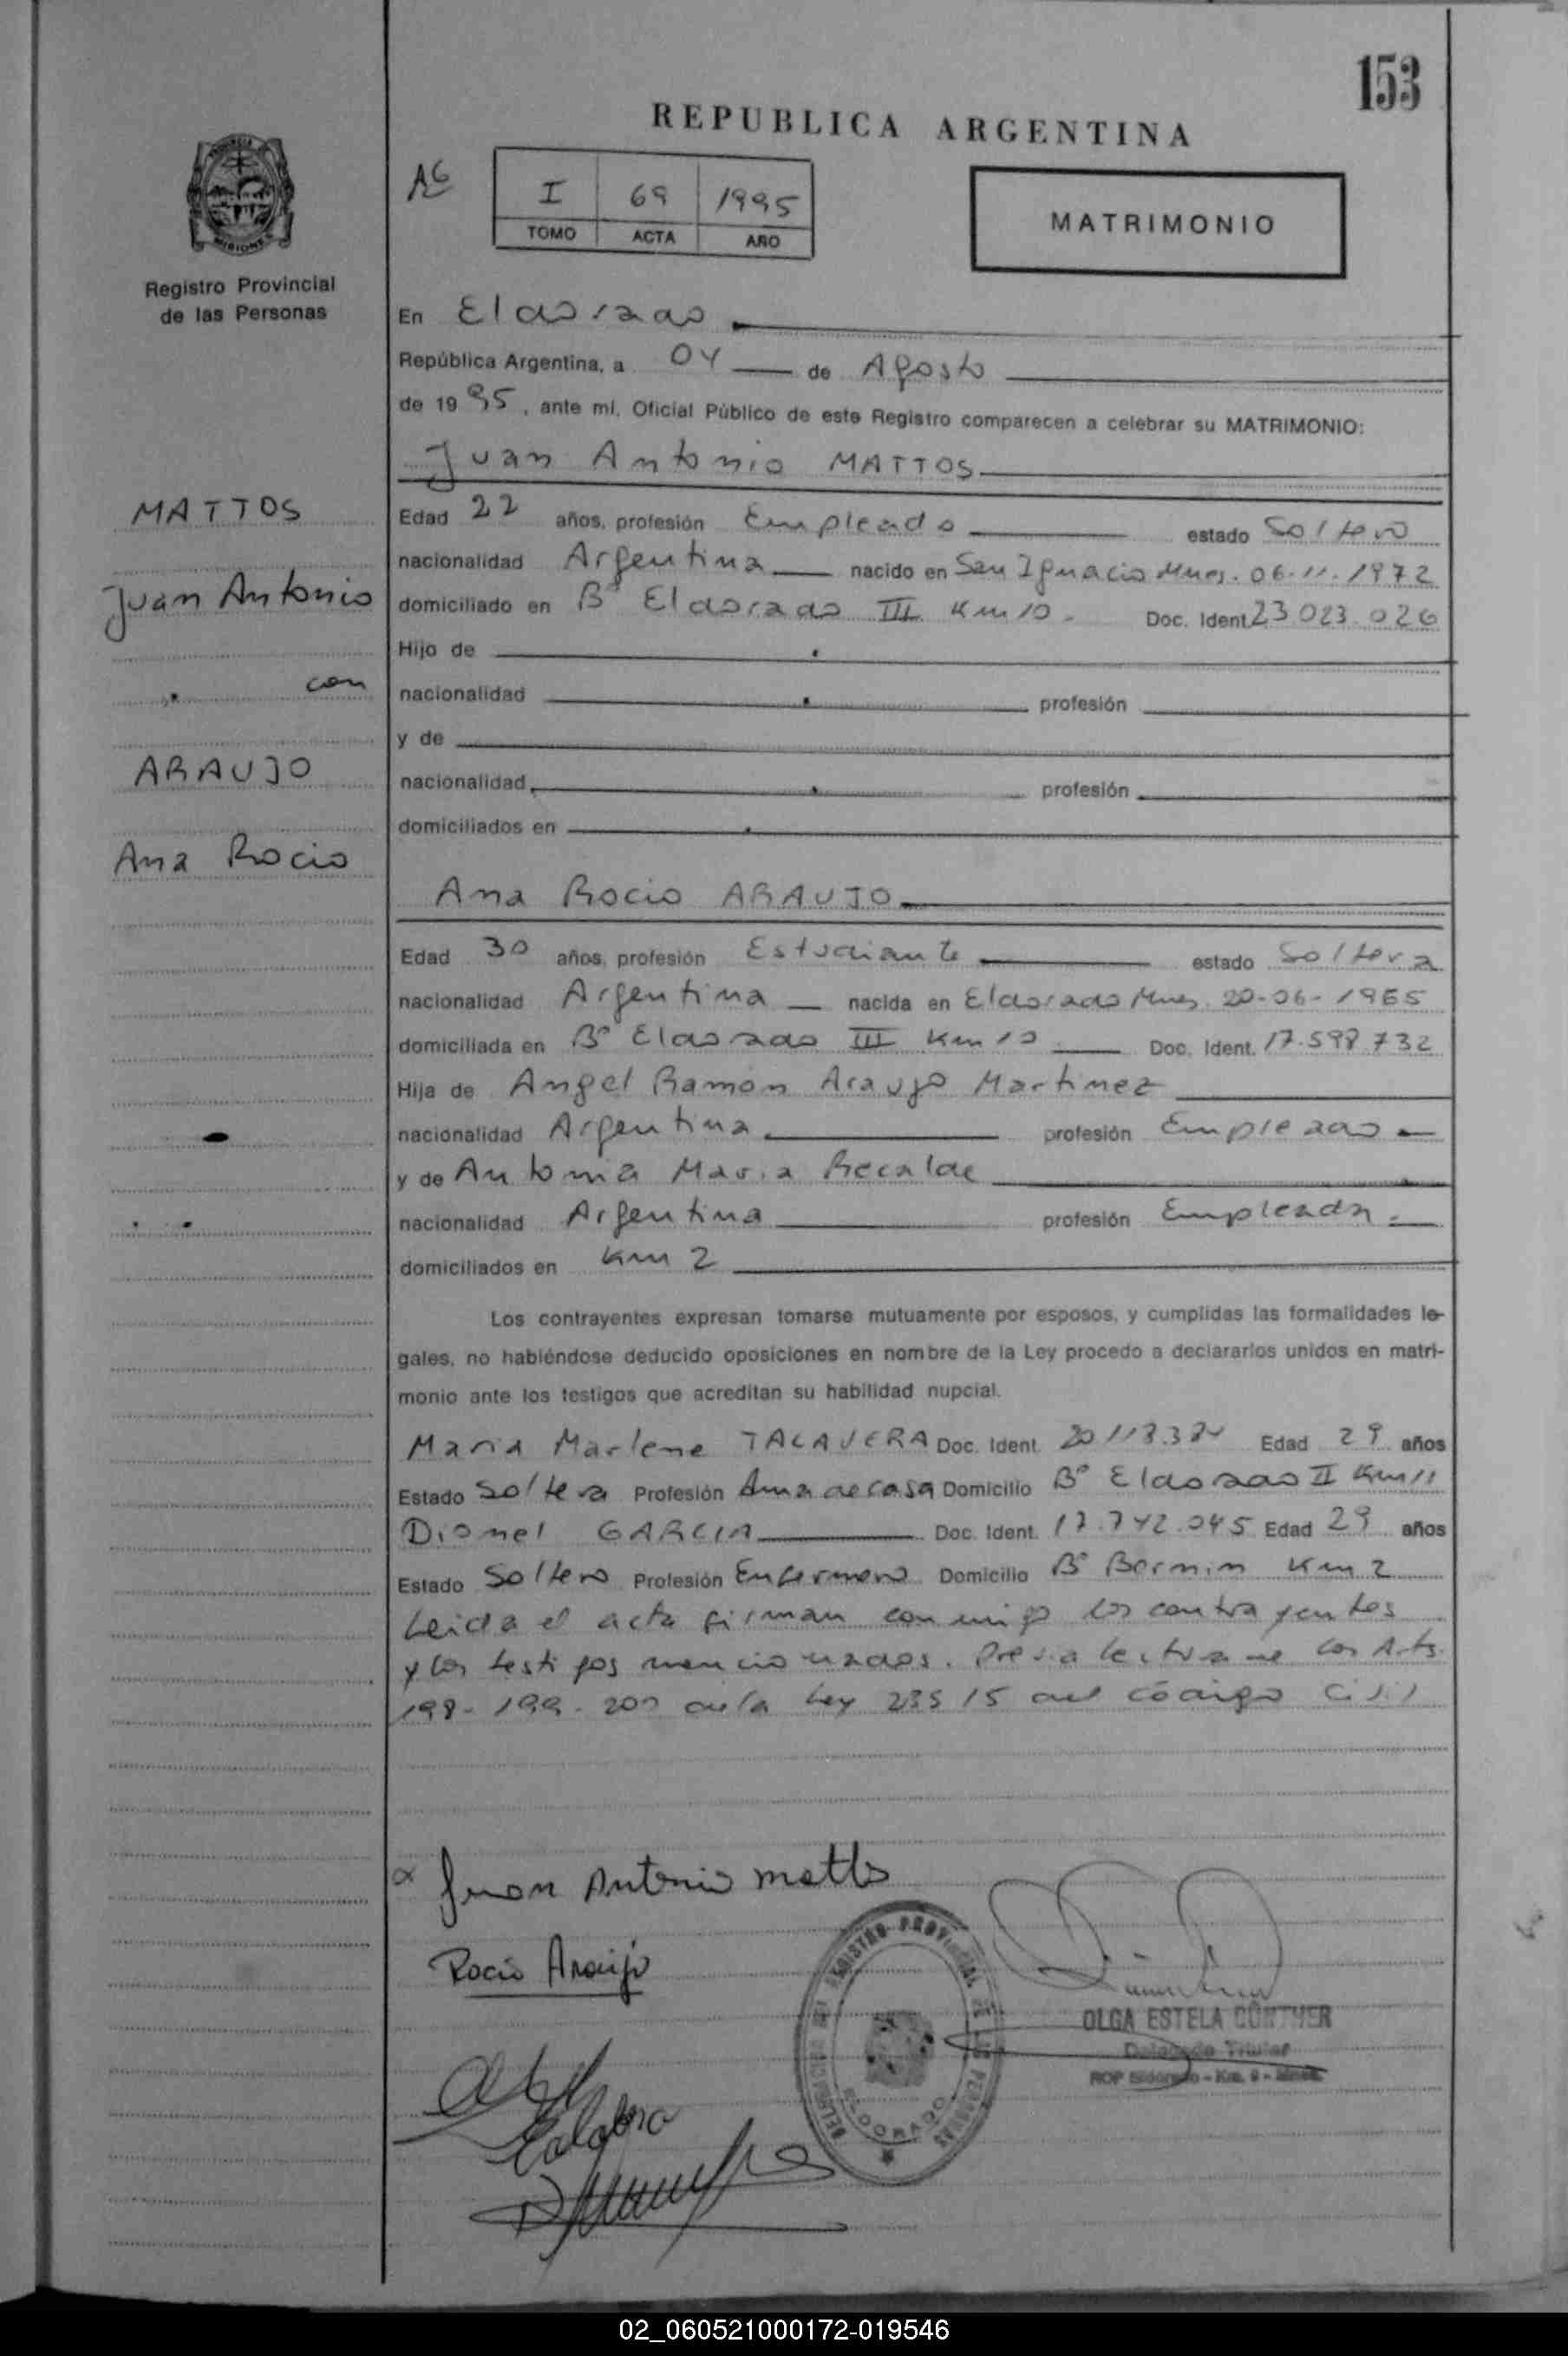 153
REPUBLICA ARGENTINA
I 69 1995
TOMO ACTA AÑO
MATRIMONIO
Registro Provincial
de las Personas
En Eldorado
República Argentina, a 04 de Agosto
de 1995, ante mí, Oficial Público de este Registro comparecen a celebrar su MATRIMONIO:
Juan Antonio MATTOS
MATTOS
Juan Antonio
con
ARAUJO
Ana Rocio
Edad 22 años, profesión Empleado estado Soltero
nacionalidad Argentina nacido en San Ignacio Mnes. 06-11-1972
domiciliado en Bº Eldorado III Km 10. Doc. Ident. 23.023.026
Hijo de
nacionalidad profesión
y de
nacionalidad profesión
domiciliados en
Ana Rocio ARAUJO
Edad 30 años, profesión Estudiante estado Soltera
nacionalidad Argentina nacida en Eldorado Mnes. 20-06-1965
domiciliada en Bº Eldorado III Km 10 Doc. Ident. 17.598.732
Hija de Angel Ramon Araujo Martinez
nacionalidad Argentina profesión Empleado
y de Antonia Maria Recalde
nacionalidad Argentina profesión Empleada
domiciliados en Km 2
Los contrayentes expresan tomarse mutuamente por esposos, y cumplidas las formalidades le-
gales, no habiéndose deducido oposiciones en nombre de la Ley procedo a declararlos unidos en matri-
monio ante los testigos que acreditan su habilidad nupcial.
Maria Marlene TALAVERA Doc. Ident. Edad 29 años
Estado Soltera Profesión Ama de casa Domicilio Bº Eldorado II Km 11
Dionel GARCIA Doc. Ident. 17.742.045 Edad 29 años
Estado Soltero Profesión Enfermero Domicilio Bº Km 2
Leida el acta firman conmigo los contrayentes
y los testigos mencionados. Previa lectura de los Arts.
198-199-200 de la Ley 23515 del código Civil
Juan Antonio Mattos
Rocio Araujo
REGISTRO PROVINCIAL DE LAS PERSONAS
ELDORADO
OLGA ESTELA GÜNTHER
Delegada Titular
02_060521000172-019546